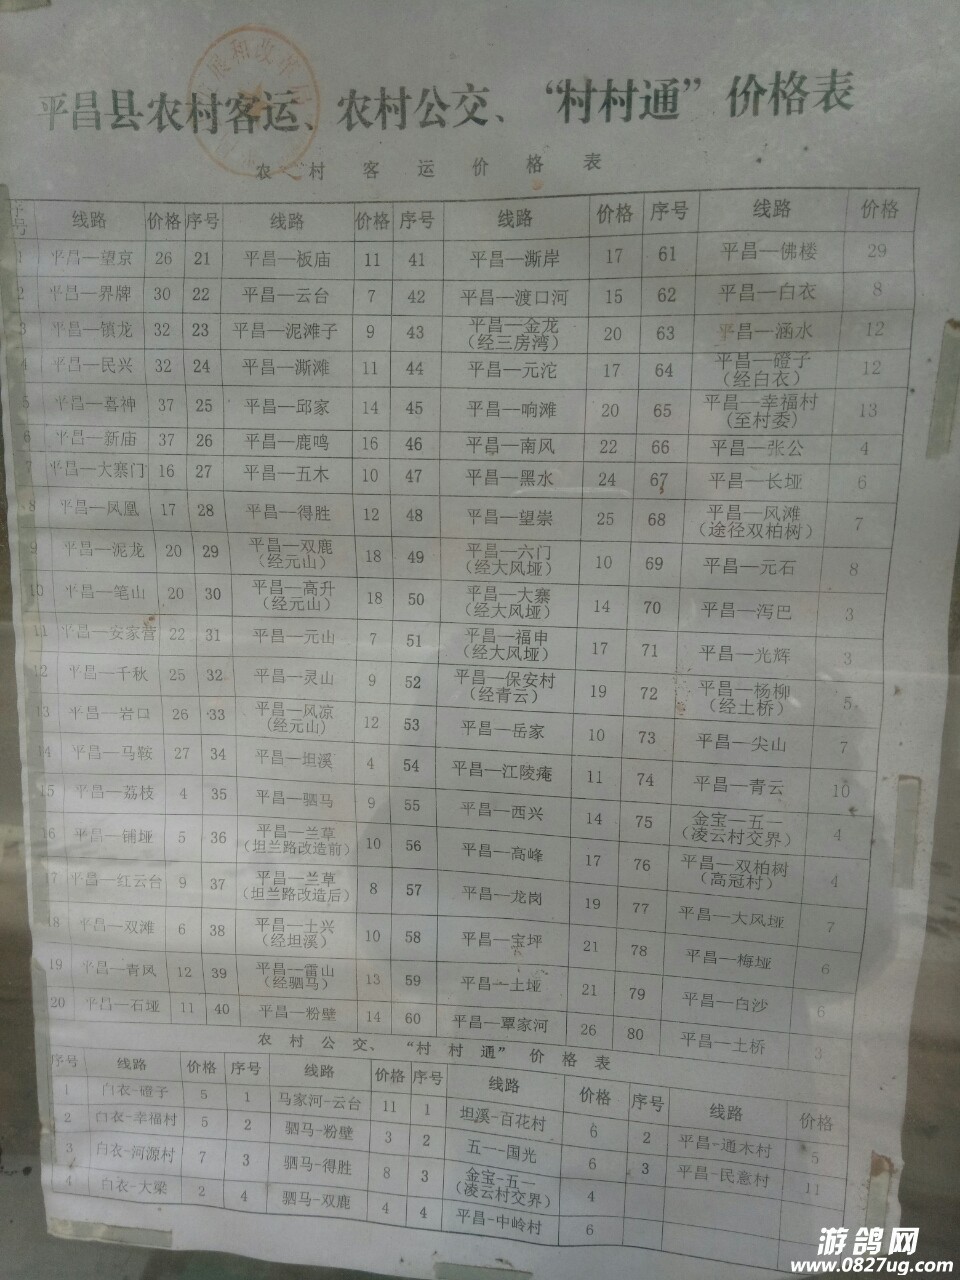 展和改革
平昌县农村客运、农村公交、“村村通”价格表
农村客运价格表
序号 线路 价格 序号 线路 价格 序号 线路 价格 序号 线路 价格
1 平昌—望京 26 21 平昌—板庙 11 41 平昌—澌岸 17 61 平昌—佛楼 29
2 平昌—界牌 30 22 平昌—云台 7 42 平昌—渡口河 15 62 平昌—白衣 8
3 平昌—镇龙 32 23 平昌—泥滩子 9 43 平昌—金龙(经三房湾) 20 63 平昌—涵水 12
4 平昌—民兴 32 24 平昌—澌滩 11 44 平昌—元沱 17 64 平昌—磴子(经白衣) 12
5 平昌—喜神 37 25 平昌—邱家 14 45 平昌—响滩 20 65 平昌—幸福村(至村委) 13
6 平昌—新庙 37 26 平昌—鹿鸣 16 46 平昌—南风 22 66 平昌—张公 4
7 平昌—大寨门 16 27 平昌—五木 10 47 平昌—黑水 24 67 平昌—长垭 6
8 平昌—凤凰 17 28 平昌—得胜 12 48 平昌—望崇 25 68 平昌—风滩(途径双柏树) 7
9 平昌—泥龙 20 29 平昌—双鹿(经元山) 18 49 平昌—六门(经大风垭) 10 69 平昌—元石 8
10 平昌—笔山 20 30 平昌—高升(经元山) 18 50 平昌—大寨(经大风垭) 14 70 平昌—泻巴 3
11 平昌—安家营 22 31 平昌—元山 7 51 平昌—福申(经大风垭) 17 71 平昌—光辉 3
12 平昌—千秋 25 32 平昌—灵山 9 52 平昌—保安村(经青云) 19 72 平昌—杨柳(经土桥) 5
13 平昌—岩口 26 33 平昌—风凉(经元山) 12 53 平昌—岳家 10 73 平昌—尖山 7
14 平昌—马鞍 27 34 平昌—坦溪 4 54 平昌—江陵庵 11 74 平昌—青云 10
15 平昌—荔枝 4 35 平昌—驷马 9 55 平昌—西兴 14 75 金宝—五一(凌云村交界) 4
16 平昌—铺垭 5 36 平昌—兰草(坦兰路改造前) 10 56 平昌—高峰 17 76 平昌—双柏树(高冠村) 4
17 平昌—红云台 9 37 平昌—兰草(坦兰路改造后) 8 57 平昌—龙岗 19 77 平昌—大风垭 7
18 平昌—双滩 6 38 平昌—土兴(经坦溪) 10 58 平昌—宝坪 21 78 平昌—梅垭 6
19 平昌—青凤 12 39 平昌—雷山(经驷马) 13 59 平昌—土垭 21 79 平昌—白沙 6
20 平昌—石垭 11 40 平昌—粉壁 14 60 平昌—覃家河 26 80 平昌—土桥 3
农村公交、“村村通”价格表
序号 线路 价格 序号 线路 价格 序号 线路 价格 序号 线路 价格
1 白衣-磴子 5 1 马家河-云台 11 1 坦溪-百花村 6 2 平昌-通木村 5
2 白衣-幸福村 5 2 驷马-粉壁 3 2 五一-国光 6 3 平昌-民意村 11
3 白衣-河源村 7 3 驷马-得胜 8 3 金宝-五一(凌云村交界) 4
4 白衣-大梁 2 4 驷马-双鹿 4 4 平昌-中岭村 6
游鸽网
www.0827ug.com